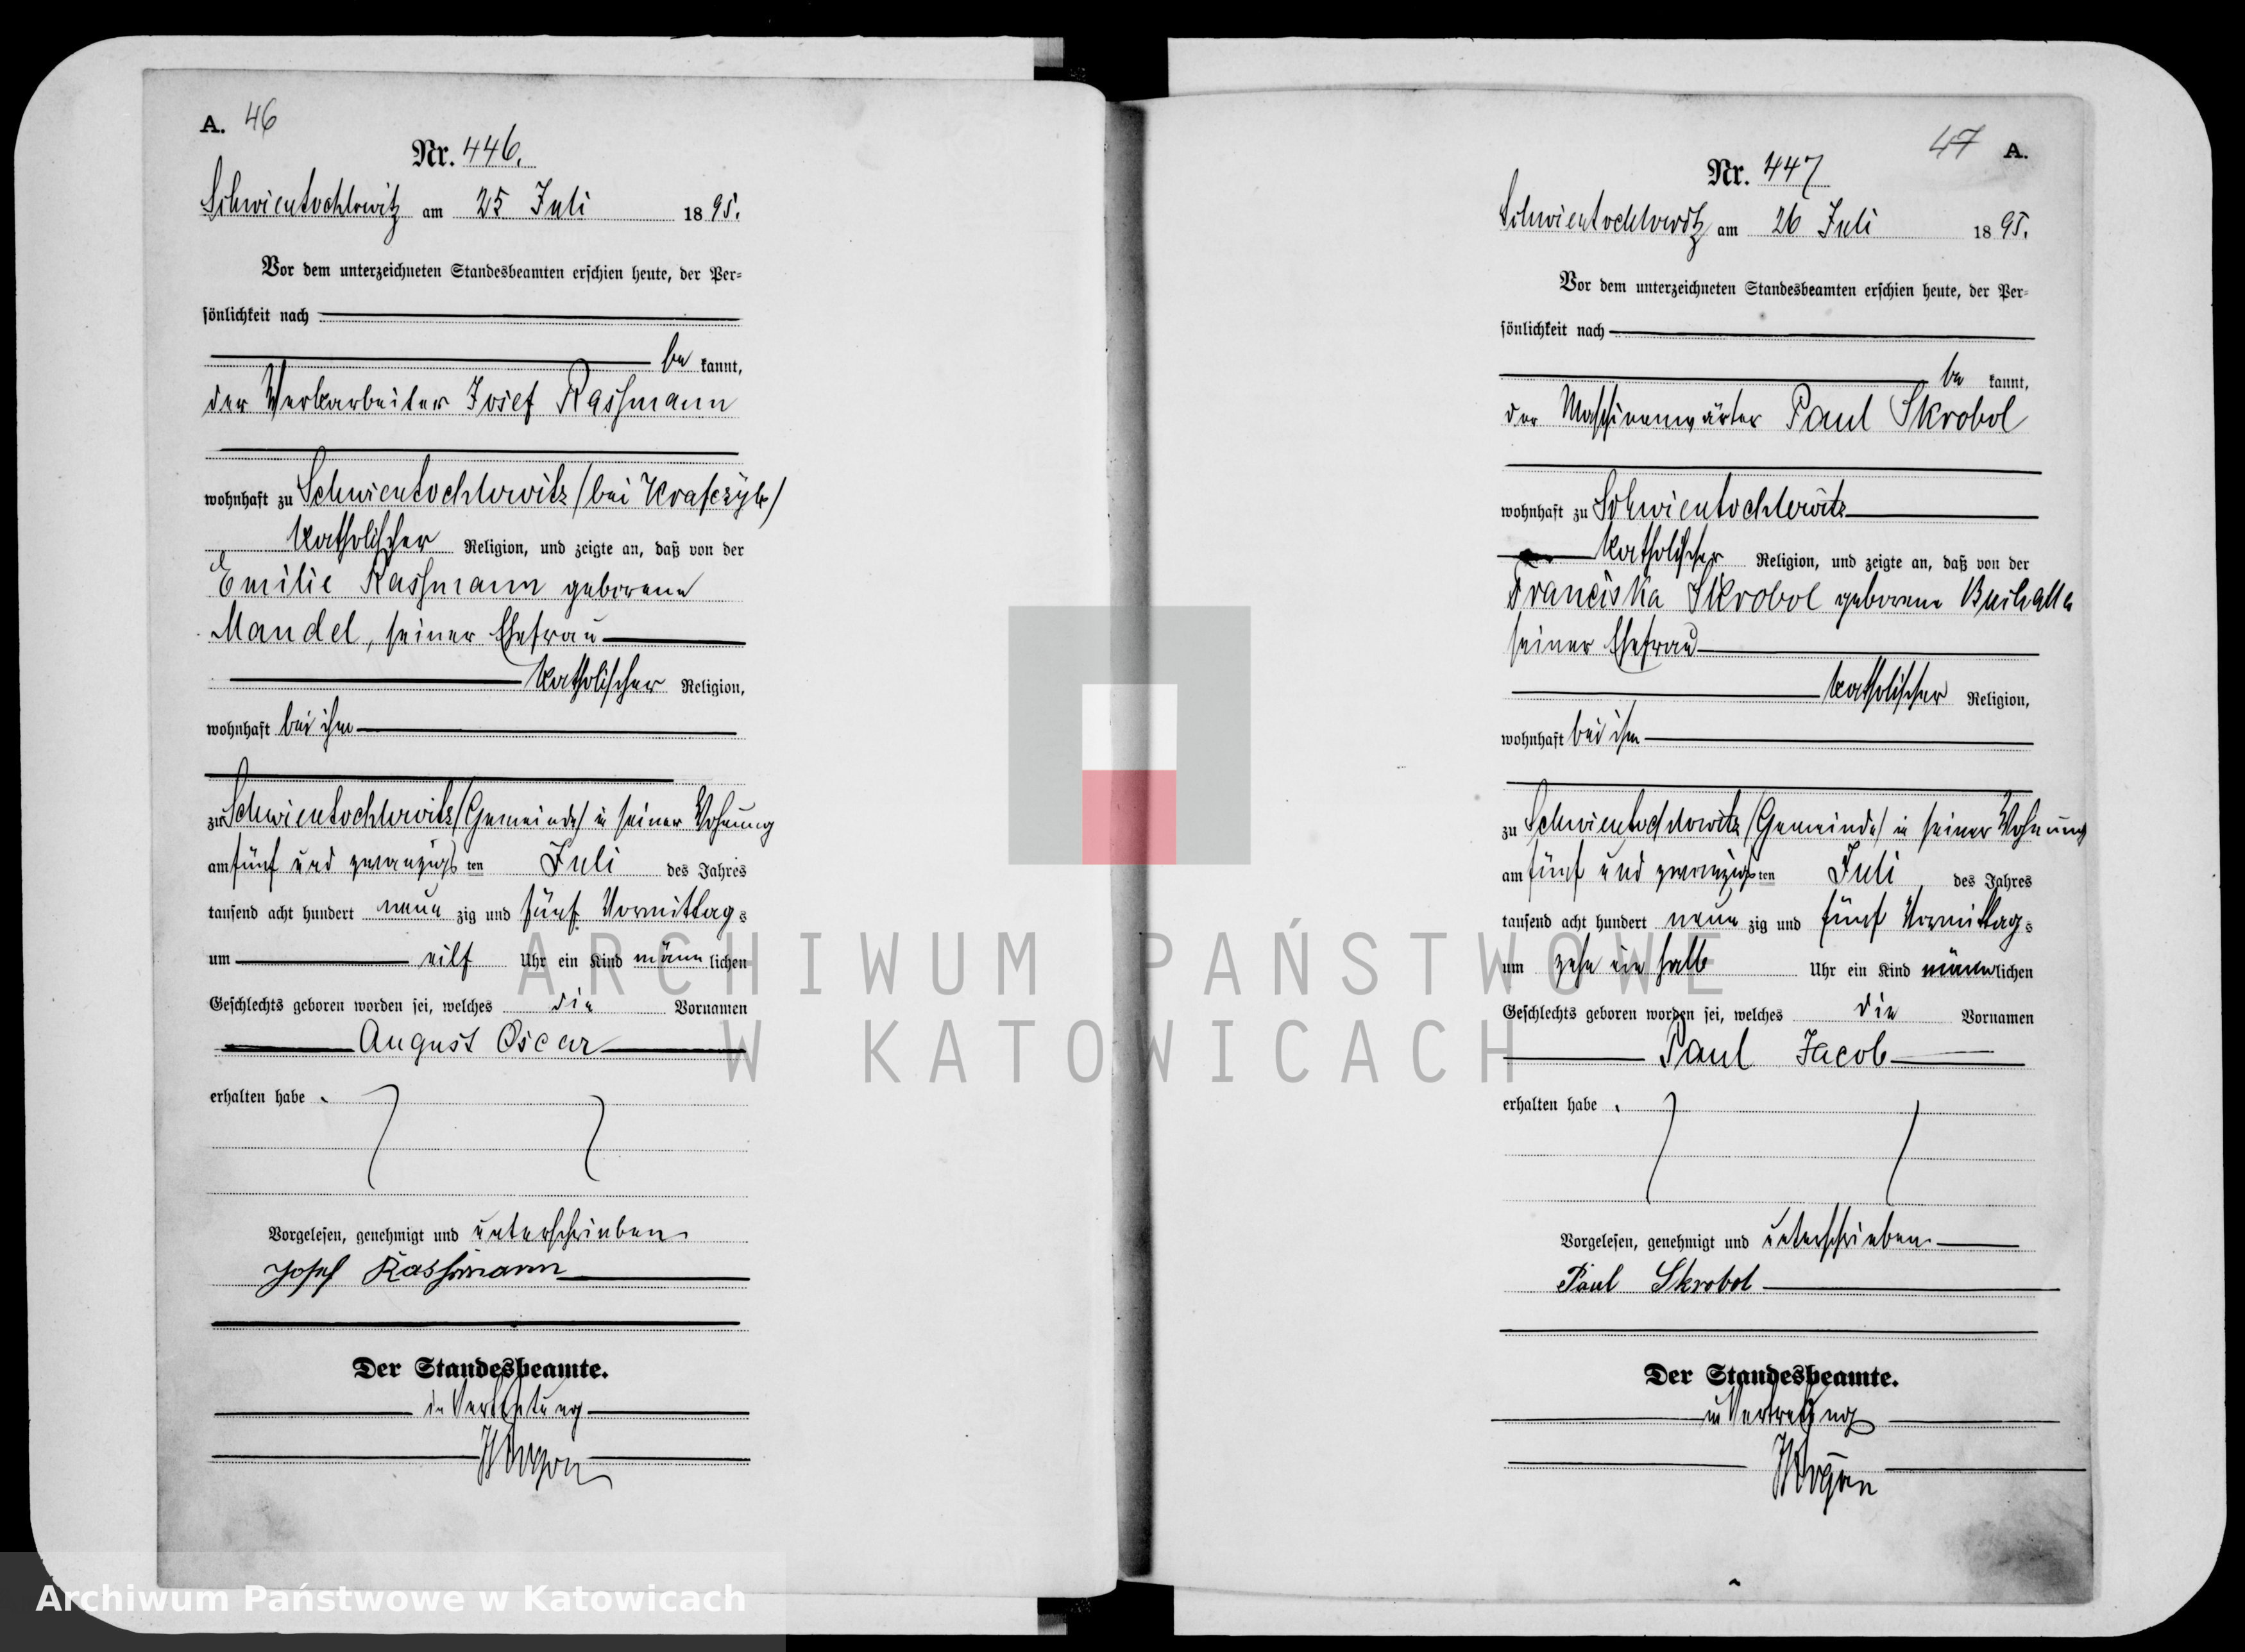 A. 46
Nr. 446.
Schwientochlowitz am 25 Juli 1895.
Vor dem unterzeichneten Standesbeamten erschien heute, der Per=
sönlichkeit nach
be kannt,
der Werkarbeiter Josef Rassmann
wohnhaft zu Schwientochlowitz (bei Krafczyk)
katholischer Religion, und zeigte an, daß von der
Emilie Rassmann geborene
Mandel, seiner Ehefrau
katholischer Religion,
wohnhaft bei ihm
zu Schwientochlowitz (Gemeinde) in seiner Wohnung
am fünf und zwanzigsten Juli des Jahres
tausend acht hundert neun zig und fünf Vormittags
um eilf Uhr ein Kind männlichen
Geschlechts geboren worden sei, welches die Vornamen
August Oscar
erhalten habe.
Vorgelesen, genehmigt und unterschrieben
Josef Rassmann
Der Standesbeamte.
in Vertretung
47 A.
Nr. 447
Schwientochlowitz am 26 Juli 1895.
Vor dem unterzeichneten Standesbeamten erschien heute, der Per=
sönlichkeit nach
be kannt,
der Maschinenwärter Paul Skrobol
wohnhaft zu Schwientochlowitz
katholischer Religion, und zeigte an, daß von der
Franciska Skrobol geborene
seiner Ehefrau
katholischer Religion,
wohnhaft bei ihm
zu Schwientochlowitz (Gemeinde) in seiner Wohnung
am fünf und zwanzigsten Juli des Jahres
tausend acht hundert neun zig und fünf Vormittags
um zehn ein halb Uhr ein Kind männlichen
Geschlechts geboren worden sei, welches die Vornamen
Paul Jacob
erhalten habe.
Vorgelesen, genehmigt und unterschrieben
Paul Skrobol
Der Standesbeamte.
in Vertretung
ARCHIWUM PAŃSTWOWE
W KATOWICACH
Archiwum Państwowe w Katowicach